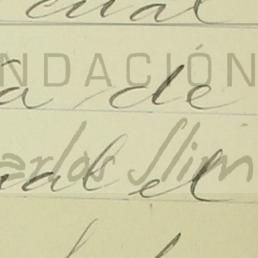 cual
NDACIÓN
a de
arlos Slim
ual el